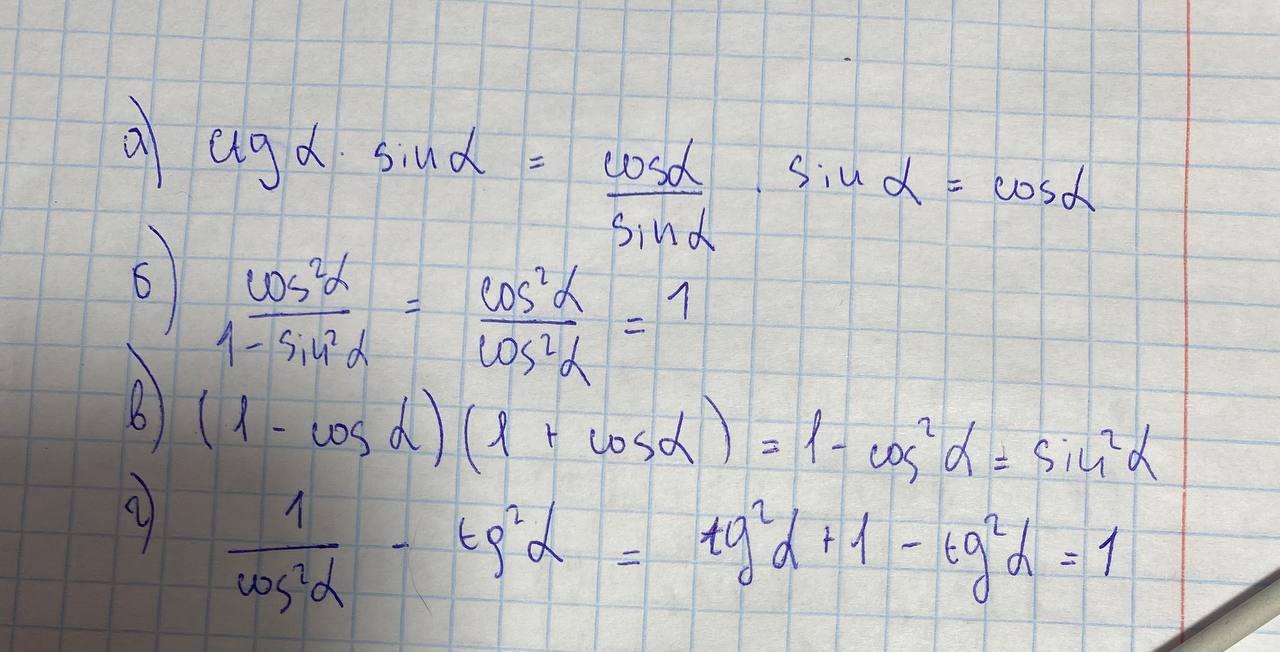 а) ctg α · sin α = cosα/sinα · sin α = cosα
б) cos²α/(1 - sin²α) = cos²α/cos²α = 1
в) (1 - cos α)(1 + cosα) = 1 - cos²α = sin²α
г) 1/cos²α - tg²α = tg²α + 1 - tg²α = 1